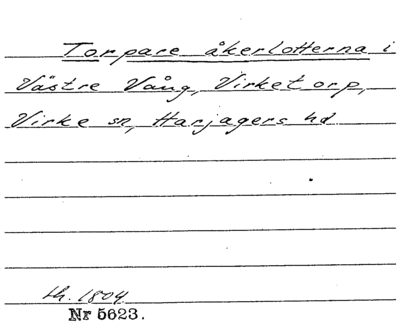 Torpare åkerlotterna i
Västre Vång, Virketorp,
Virke sn, Harjagers hd
Lh. 1804
Nr 5623.